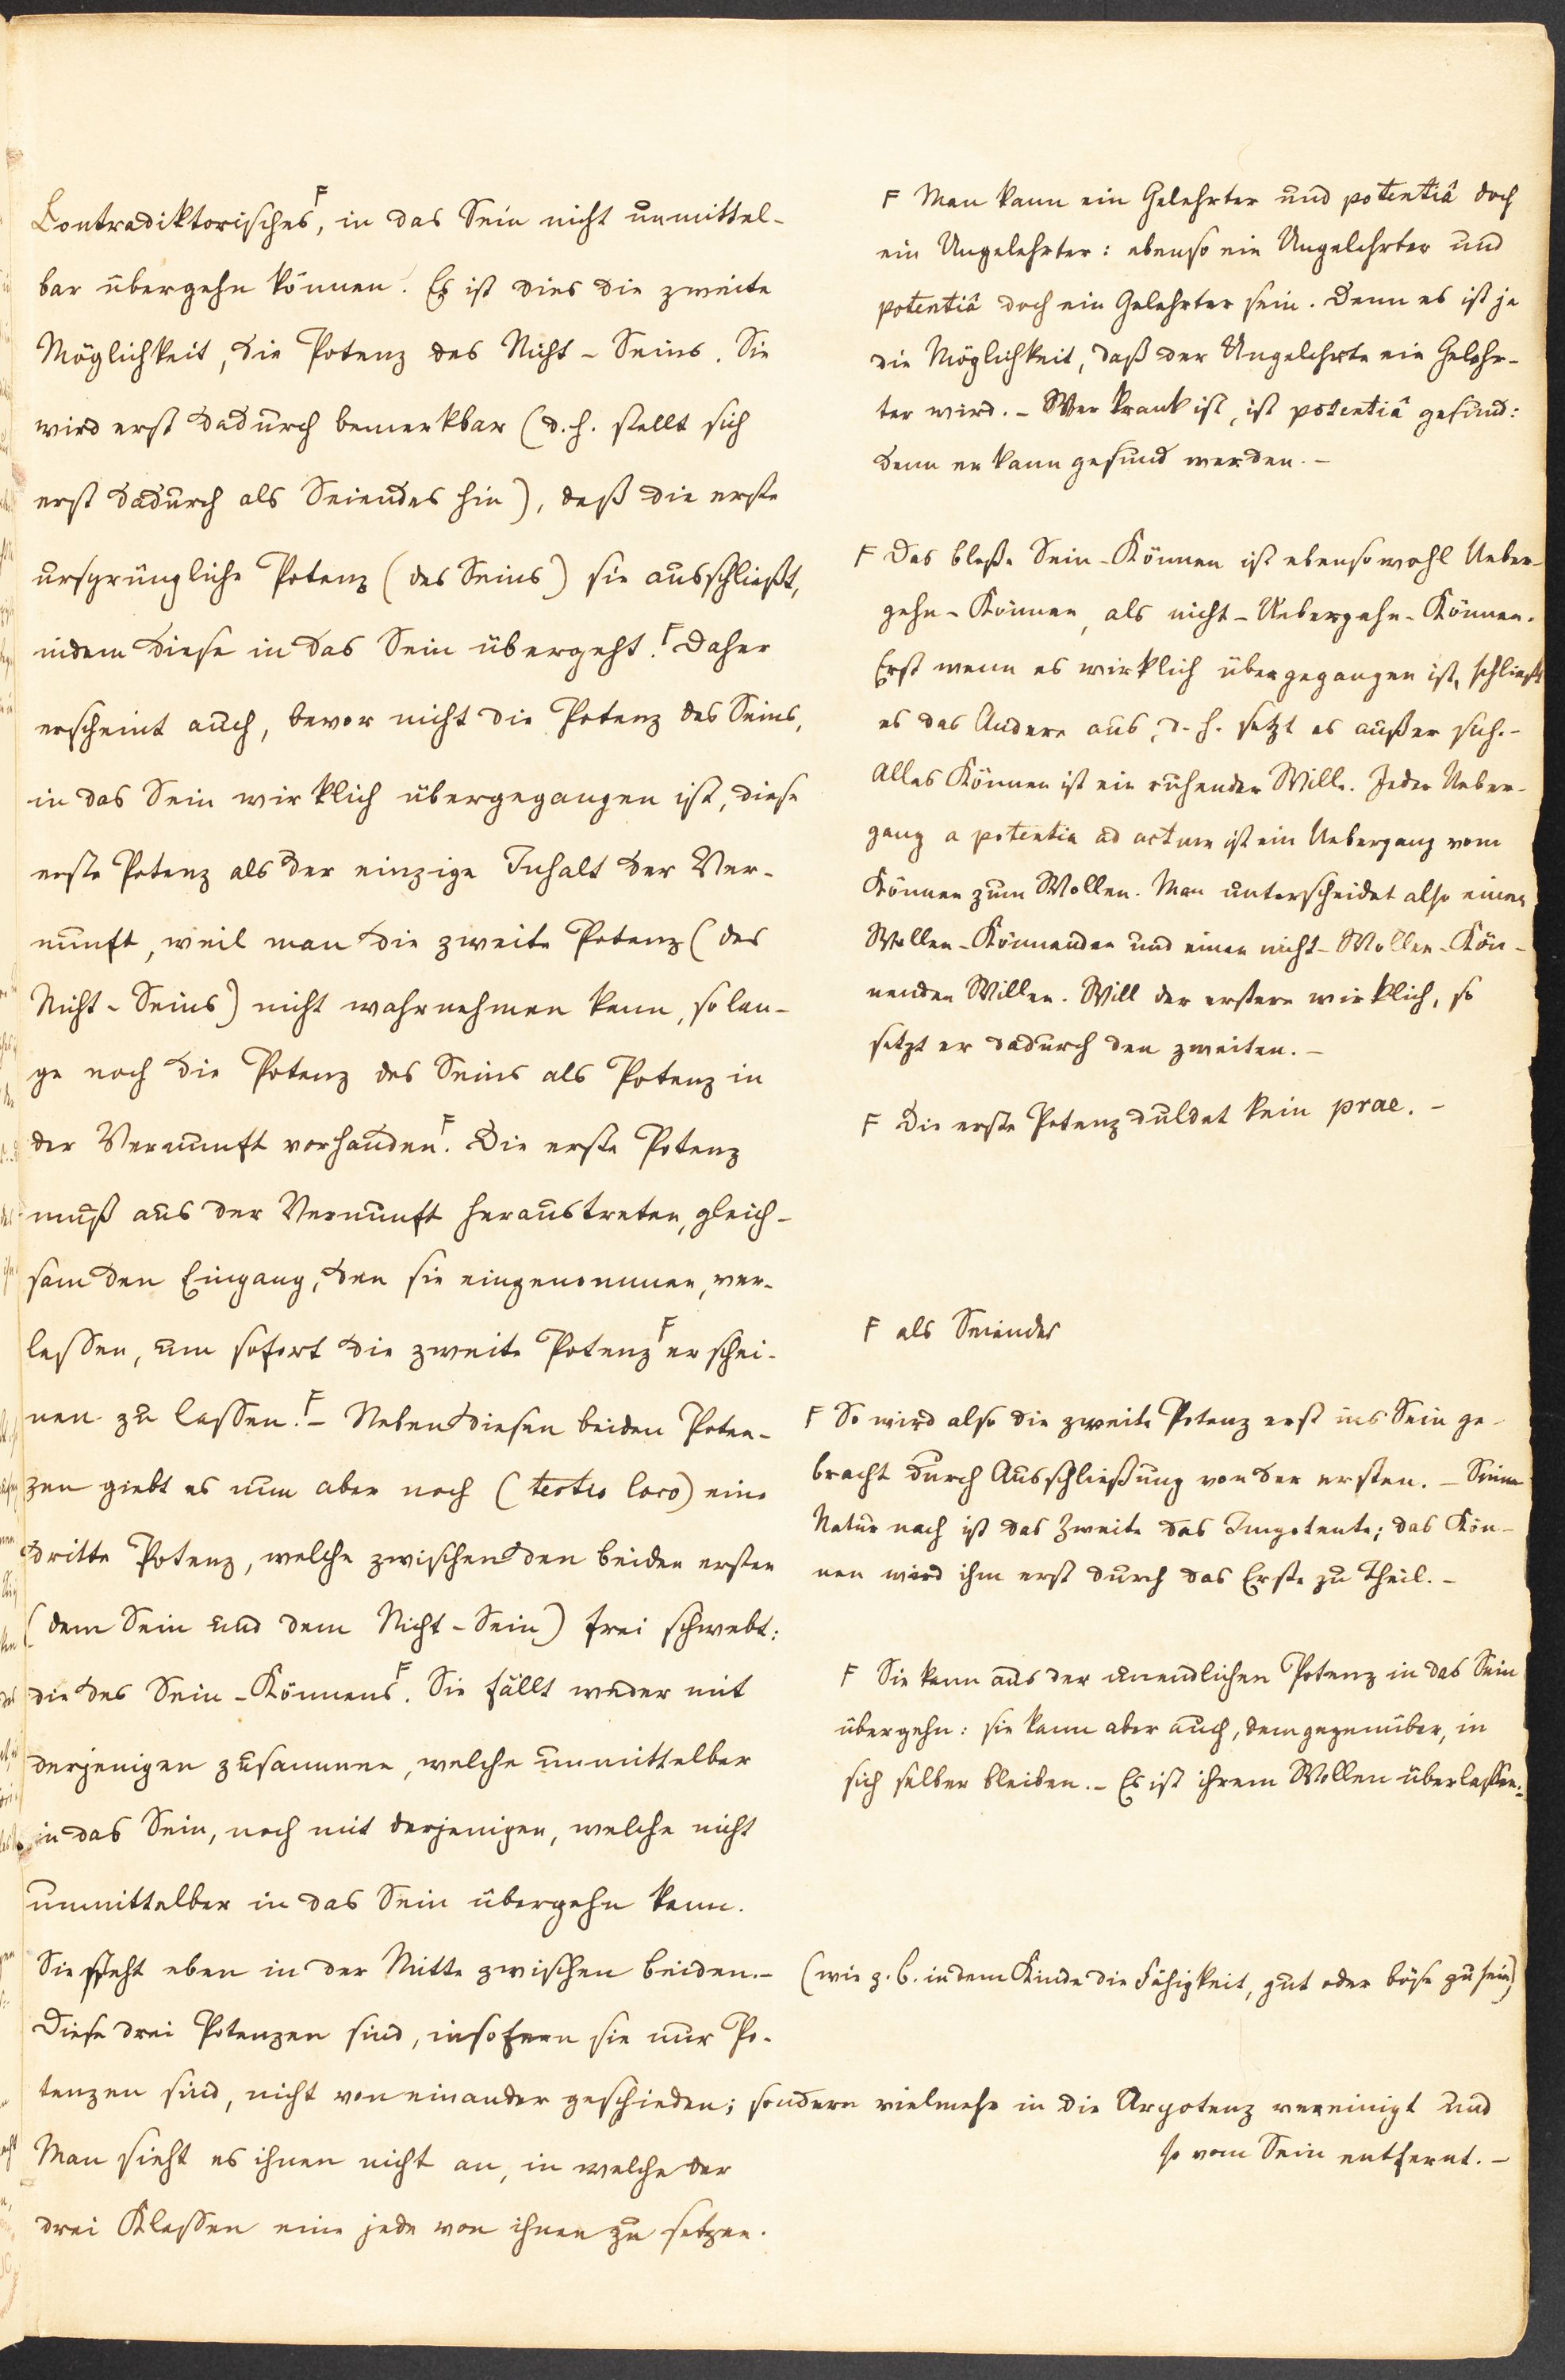 Contradiktorisches F, in das Sein nicht unmittel-
bar übergehn können. Es ist dies die zweite
Möglichkeit, die Potenz des Nicht-Seins. Sie
wird erst dadurch bemerkbar (d. h. stellt sich
erst dadurch als Seiendes hin), daß die erste
ursprüngliche Potenz (des Seins) sie ausschließt,
indem diese in das Sein übergeht. F Daher
erscheint auch, bevor nicht die Potenz des Seins,
in das Sein wirklich übergegangen ist, diese
erste Potenz als der einzige Inhalt der Ver-
nunft, weil man die zweite Potenz (des
Nicht-Seins) nicht wahrnehmen kann, so lan-
ge noch die Potenz des Seins als Potenz in
der Vernunft vorhanden F. Die erste Potenz
muß aus der Vernunft heraustreten, gleich-
sam den Eingang, den sie eingenommen, ver-
lassen, um sofort die zweite Potenz F erschei-
nen zu lassen. F – Neben diesen beiden Poten-
zen giebt es nun aber noch (tertio loco) eine
dritte Potenz, welche zwischen den beiden ersten
(dem Sein und dem Nicht-Sein) frei schwebt:
die des Sein-Könnens F. Sie fällt weder mit
derjenigen zusammen, welche unmittelbar
in das Sein, noch mit derjenigen, welche nicht
unmittelbar in das Sein übergehn kann.
Sie steht eben in der Mitte zwischen beiden. – (wie z. B. in dem Kinde die Fähigkeit, gut oder böse zu sein)
Diese drei Potenzen sind, insofern sie nur Po-
tenzen sind, nicht von einander geschieden; sondern vielmehr in die Urpotenz vereinigt und
so vom Sein entfernt. –
Man sieht es ihnen nicht an, in welche der
drei Klassen eine jede von ihnen zu setzen.
F Man kann ein Gelehrter und potentiâ doch
ein Ungelehrter: ebenso ein Ungelehrter und
potentiâ doch ein Gelehrter sein. Denn es ist ja
die Möglichkeit, daß der Ungelehrte ein Gelehr-
ter wird. – Wer krank ist, ist potentiâ gesund:
denn er kann gesund werden. –
F Das bloße Sein-Können ist ebensowohl Ueber-
gehn-Können, als nicht-Uebergehn-Können.
Erst wenn es wirklich übergegangen ist, schließt
es das Andere aus, d. h. setzt es außer sich. –
Alles Können ist ein ruhender Wille. Jeder Ueber-
gang a potentia ad actum ist ein Uebergang vom
Können zum Wollen. Man unterscheidet also einen
Wollen-Könnenden und einen nicht-Wollen-Kön-
nenden Willen. Will der erstere wirklich, so
setzt er dadurch den zweiten. –
F Die erste Potenz duldet kein prae. –
F als Seiendes
F So wird also die zweite Potenz erst ins Sein ge-
bracht durch Ausschließung von der ersten. – Seiner
Natur nach ist das Zweite das Impotente; das Kön-
nen wird ihm erst durch das Erste zu Theil. –
F Sie kann aus der unendlichen Potenz in das Sein
übergehn: sie kann aber auch, demgegenüber, in
sich selber bleiben. – Es ist ihrem Wollen überlassen. –